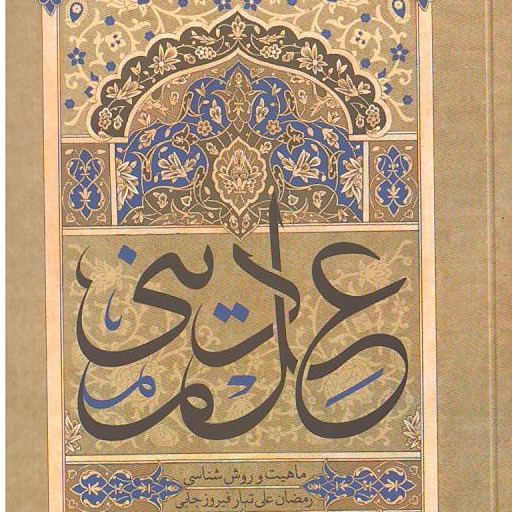 علم دینی
ماهیت و روش شناسی
رمضان علی تبار فیروزجایی